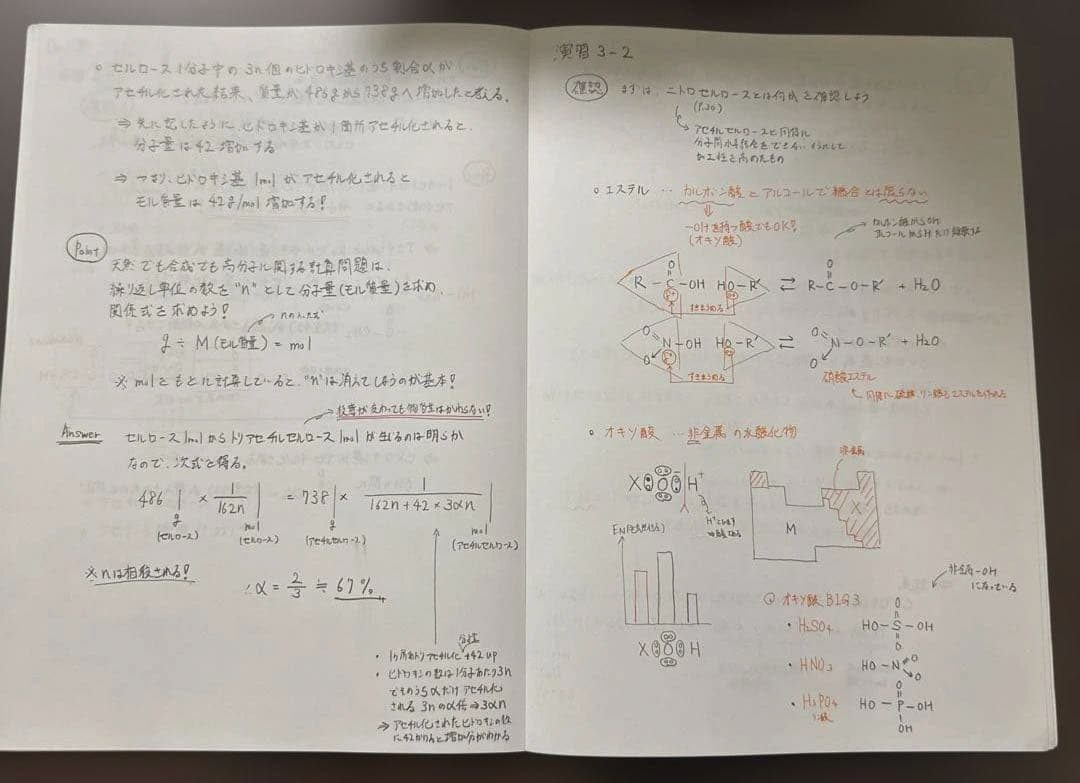 。セルロース1分子中の3n個のヒドロキシ基のうち割合αが
アセチル化された結果、質量が486gから738gへ増加したと考える。
⇒ 先に記したように、ヒドロキシ基が1箇所アセチル化されると、
分子量は42増加する
⇒ つまり、ヒドロキシ基1molがアセチル化されると
モル質量は42g/mol増加する!
Point
天然でも合成でも高分子に関する計算問題は、
繰り返し単位の数を"n"として分子量(モル質量)を求め、
関係式を求めよう!
nの入った式
g ÷ M(モル質量) = mol
※ molをもとに計算していると、"n"は消えてしまうのが基本!
Answer
セルロース1molからトリアセチルセルロース1molが生じるのは明らか
なので、次式を得る。
486 × 1/162n = 738 × 1/(162n+42×3αn)
g
(セルロース)
mol
(セルロース)
g
(アセチルセルロース)
mol
(アセチルセルロース)
※nは相殺される!
∴ α = 2/3 ≒ 67%
分子量
・1ヶ所あたりアセチル化+42up
・ヒドロキシの数は1分子あたり3n
でそのうちαだけアセチル化
される 3nのα倍⇒3αn
⇒アセチル化されたヒドロキシの数
に42かけると増加分がわかる
演習 3-2
確認
まずは、ニトロセルロースとは何かを確認しよう
(P.30)
アセチルセルロースと同様に
加工性を高めたもの
。エステル … カルボン酸とアルコールで縮合とは限らない
-OHを持つ酸でもOK!
(オキソ酸)
カルボン酸からOH
アルコールからH
R-C-OH HO-R' ⇄ R-C-O-R' + H2O
O
O
δ+
N-OH HO-R' ⇄ N-O-R' + H2O
O
O
O
O
δ+
硝酸エステル
同様に硫酸、リン酸もエステルを作れる
。オキソ酸 …非金属の水酸化物
非金属
X O H+
M
X
EN(電気陰性度)
X O H
非金属-OH
になっている
◎ オキソ酸 BIG3
・H2SO4
O
HO-S-OH
O
・HNO3
HO-N
O
O
・H3PO4
リン酸
O
HO-P-OH
OH